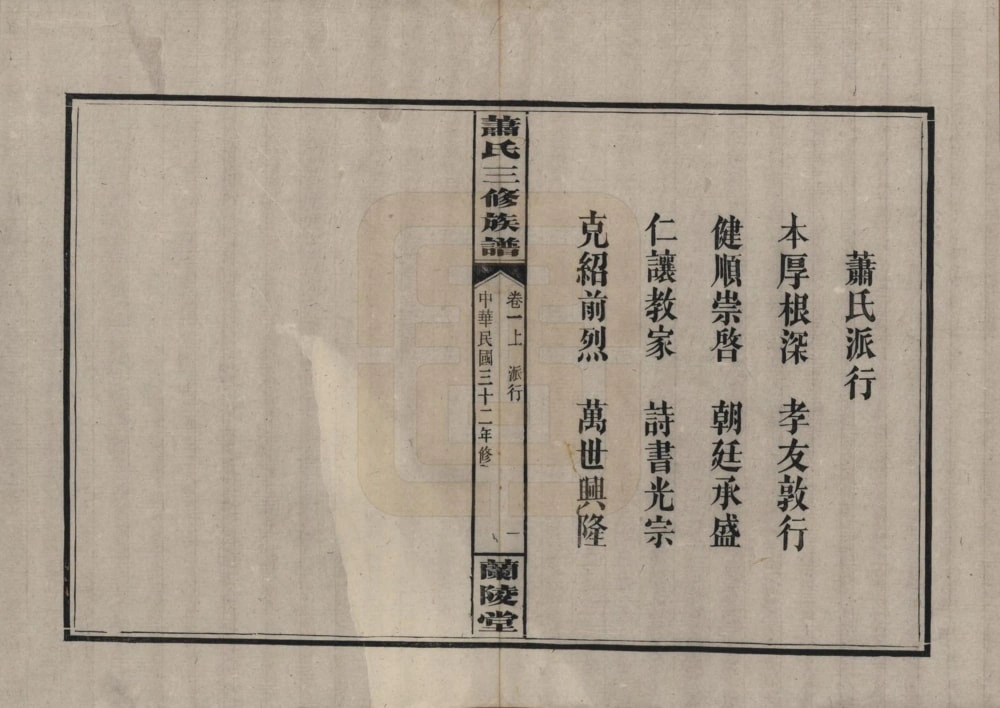 蕭氏派行
本厚根深 孝友敦行
健順崇啓 朝廷承盛
仁讓教家 詩書光宗
克紹前烈 萬世興隆
蕭氏三修族譜
卷一上 派行 一
中華民國三十二年修
蘭陵堂